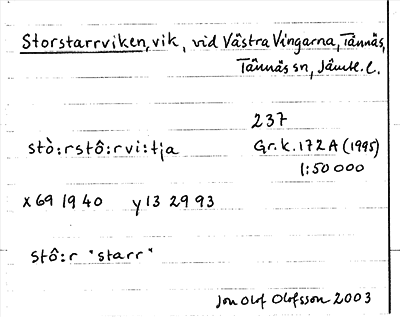 Storstarrviken, vik, vid Västra Vingarna, Tännäs,
Tännäs sn, Jämtl. l.
237
stò:rstô:rvi:tja Gr.k.172A (1995)
1:50 000
x 69 19 40 y 13 29 93
stô:r "starr"
Jon Olof Olofsson 2003